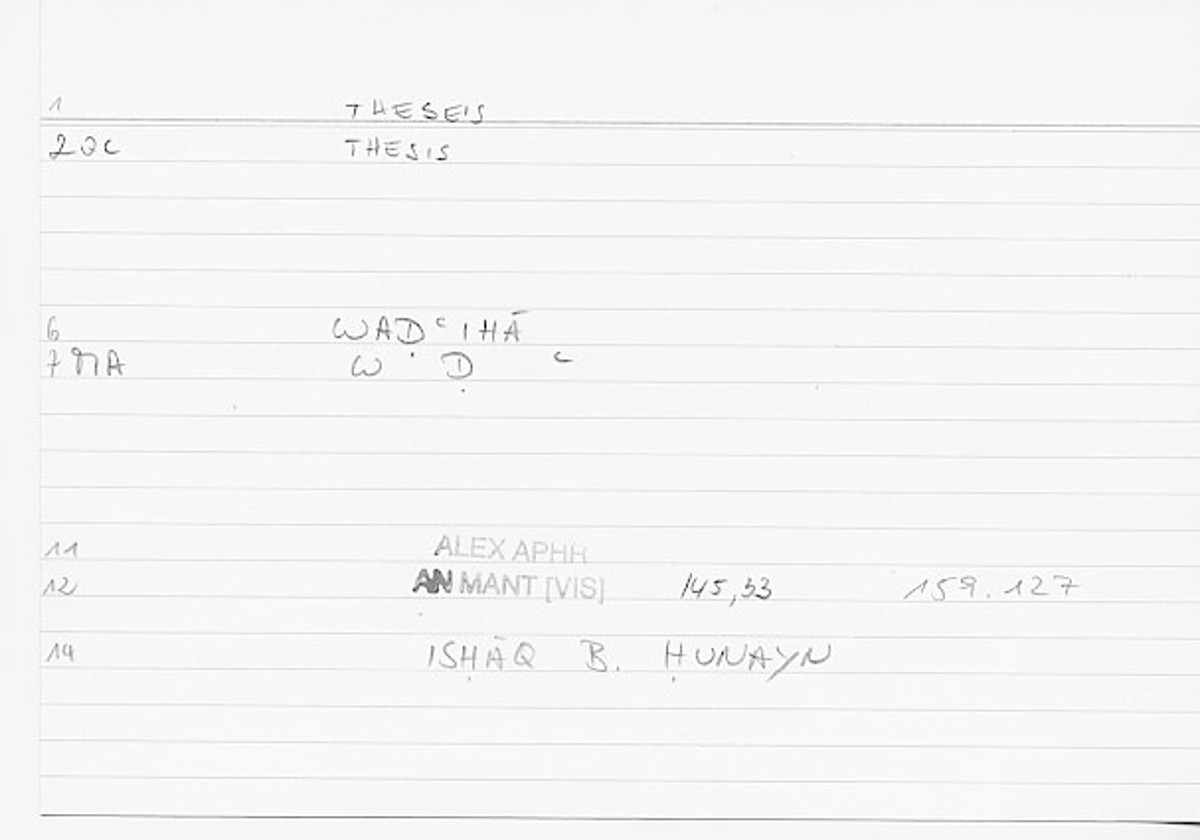 1 THESEIS
2 OC THESIS
6 WAḌʿIHĀ
7 MA W Ḍ ʿ
11 ALEX APHR
12 AN MANT [VIS] 145,33 159.127
14 ISḤĀQ B. ḤUNAYN